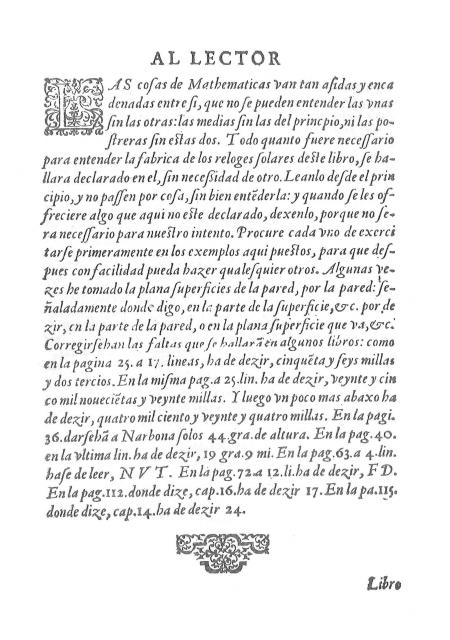 AL LECTOR
LAS coſas de Mathematicas van tan aſidas y enca
denadas entre ſi, que no ſe pueden entender las vnas
ſin las otras: las medias ſin las del princpio, ni las po-
ſtreras ſin eſtas dos. Todo quanto fuere neceſſario
para entender la fabrica de los reloges ſolares deſte libro, ſe ha-
llara declarado en el, ſin neceſsidad de otro. Leanlo deſde el prin
cipio, y no paſſen por coſa, ſin bien entēderla: y quando ſe les of-
freciere algo que aqui no eſte declarado, dexenlo, porque no ſe-
ra neceſſario para nueſtro intento. Procure cada vno de exerci
tarſe primeramente en los exemplos aqui pueſtos, para que deſ-
pues con facilidad pueda hazer qualeſquier otros. Algunas ve-
zes he tomado la plana ſuperficies de la pared, por la pared: ſe-
ñaladamente donde digo, en la parte de la ſuperficie, &c. por de
zir, en la parte de la pared, o en la plana ſuperficie que va, &c.
Corregirſehan las faltas que ſe hallarā en algunos libros: como
en la pagina 25. a 17. lineas, ha de dezir, cinquēta y ſeys millas
y dos tercios. En la miſma pag. a 25. lin. ha de dezir, veynte y cin
co mil noueciētas y veynte millas. Y luego vn poco mas abaxo ha
de dezir, quatro mil ciento y veynte y quatro millas. En la pagi.
36. darſehā a Narbona ſolos 44. gra. de altura. En la pag. 40.
en la vltima lin. ha de dezir, 19 gra. 9 mi. En la pag. 63. a 4. lin.
haſe de leer, N V T. En la pag. 72. a 12. li. ha de dezir, F D.
En la pag. 112. donde dize, cap. 16. ha de dezir 17. En la pa. 115.
donde dize, cap. 14. ha de dezir 24.
Libro